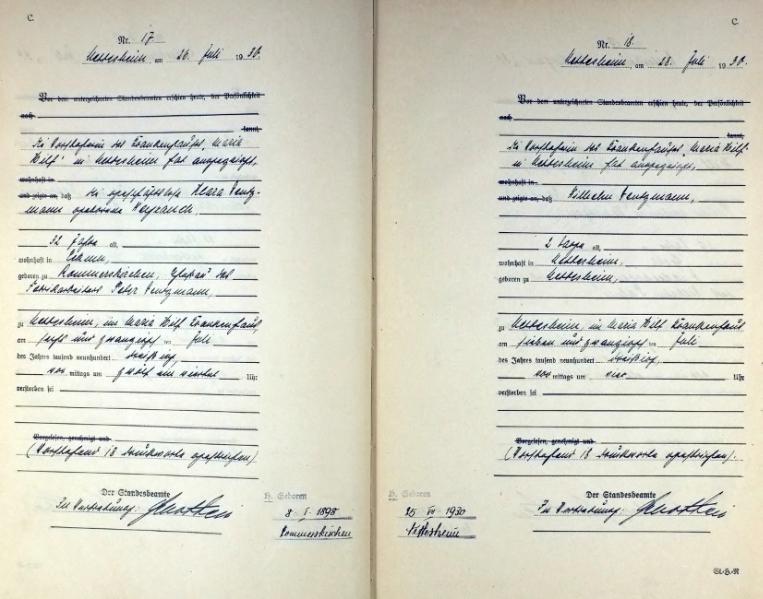 C.
Nr. 17
Nettesheim, am 26. Juli 1930.
Vor dem unterzeichneten Standesbeamten erschien heute, der Persönlichkeit
nach
kannt,
Die Vorsteherin des Krankenhauses „Maria
Hilf" in Nettesheim hat angezeigt,
wohnhaft in
und zeigte an, daß die geschäftslose Klara
mann geborene Weyrauch,
32 Jahre alt,
wohnhaft in
geboren zu Rommerskirchen, Ehefrau des
Fabrikarbeiters Peter
zu Nettesheim, im Maria Hilf Krankenhaus
am sechs und zwanzigsten Juli
des Jahres tausend neunhundert dreißig,
vor mittags um zwölf ein viertel Uhr
verstorben sei
Vorgelesen, genehmigt und
(Vorstehend 18 Druckworte gestrichen).
Der Standesbeamte
In Vertretung:
H. Geboren
8 1898
Rommerskirchen
C.
Nr. 18.
Nettesheim, am 28. Juli 1930.
Vor dem unterzeichneten Standesbeamten erschien heute, der Persönlichkeit
nach
kannt,
Die Vorsteherin des Krankenhauses „Maria Hilf"
in Nettesheim hat angezeigt,
wohnhaft in
und zeigte an, daß Wilhelm
2 Tage alt,
wohnhaft in Nettesheim,
geboren zu Nettesheim,
zu Nettesheim, im Maria Hilf Krankenhaus
am sieben und zwanzigsten Juli
des Jahres tausend neunhundert dreißig,
vor mittags um vier Uhr
verstorben sei
Vorgelesen, genehmigt und
(Vorstehend 18 Druckworte gestrichen).
Der Standesbeamte
In Vertretung:
H. Geboren
25 VII 1930
Nettesheim
St.-H.-R